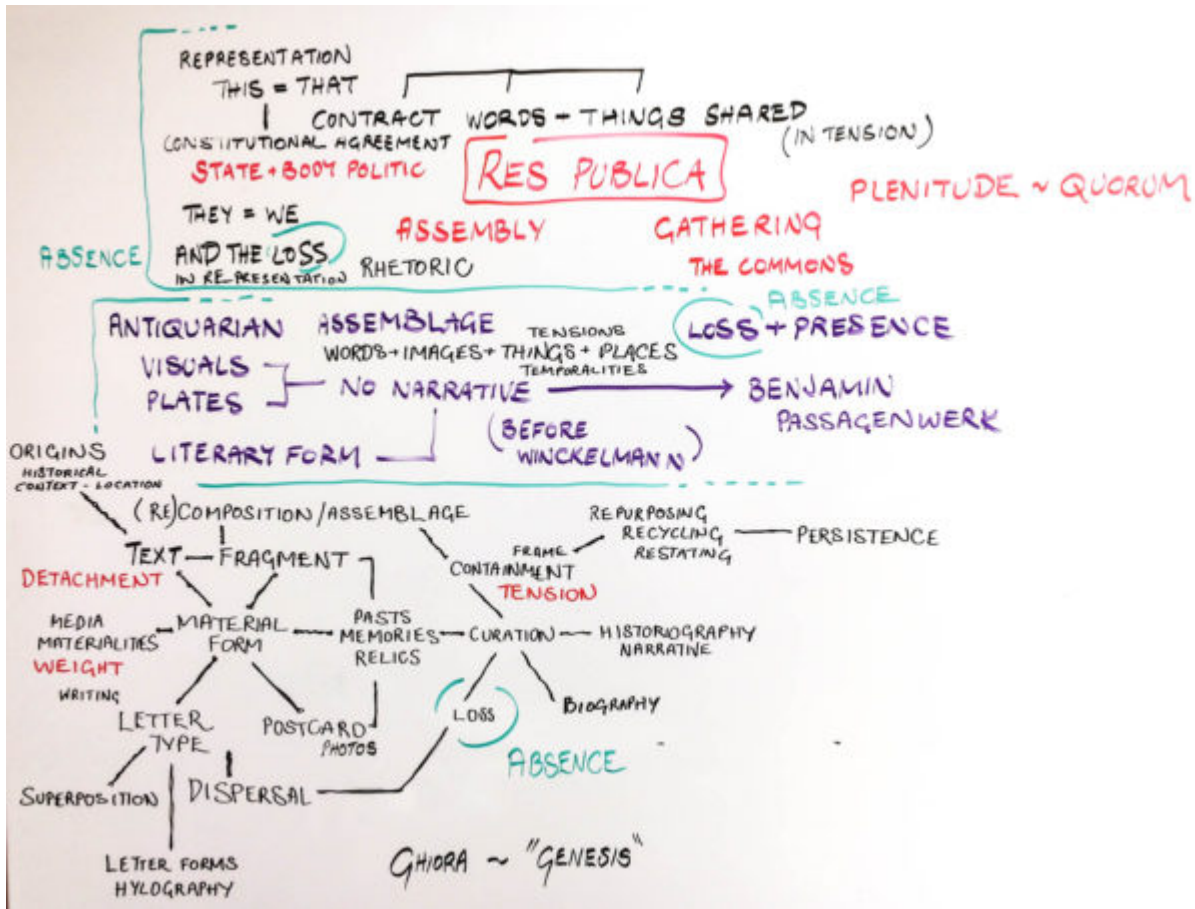 REPRESENTATION
THIS = THAT
CONTRACT WORDS + THINGS SHARED
(IN TENSION)
CONSTITUTIONAL AGREEMENT
STATE + BODY POLITIC
RES PUBLICA
PLENITUDE ~ QUORUM
THEY = WE
ASSEMBLY
GATHERING
ABSENCE
AND THE LOSS
IN RE-PRESENTATION
RHETORIC
THE COMMONS
ABSENCE
ANTIQUARIAN
ASSEMBLAGE
TENSIONS
LOSS + PRESENCE
WORDS + IMAGES + THINGS + PLACES
TEMPORALITIES
VISUALS
PLATES
NO NARRATIVE
BENJAMIN
PASSAGENWERK
(BEFORE
WINCKELMANN)
LITERARY FORM
ORIGINS
HISTORICAL
CONTEXT - LOCATION
(RE)COMPOSITION/ASSEMBLAGE
REPURPOSING
RECYCLING
RESTATING
PERSISTENCE
TEXT
FRAGMENT
FRAME
CONTAINMENT
TENSION
DETACHMENT
MEDIA
MATERIALITIES
WEIGHT
MATERIAL
FORM
PASTS
MEMORIES
RELICS
CURATION
HISTORIOGRAPHY
NARRATIVE
WRITING
LETTER
TYPE
POSTCARD
PHOTOS
LOSS
BIOGRAPHY
ABSENCE
SUPERPOSITION
DISPERSAL
LETTER FORMS
HYLOGRAPHY
GHIORA ~ "GENESIS"